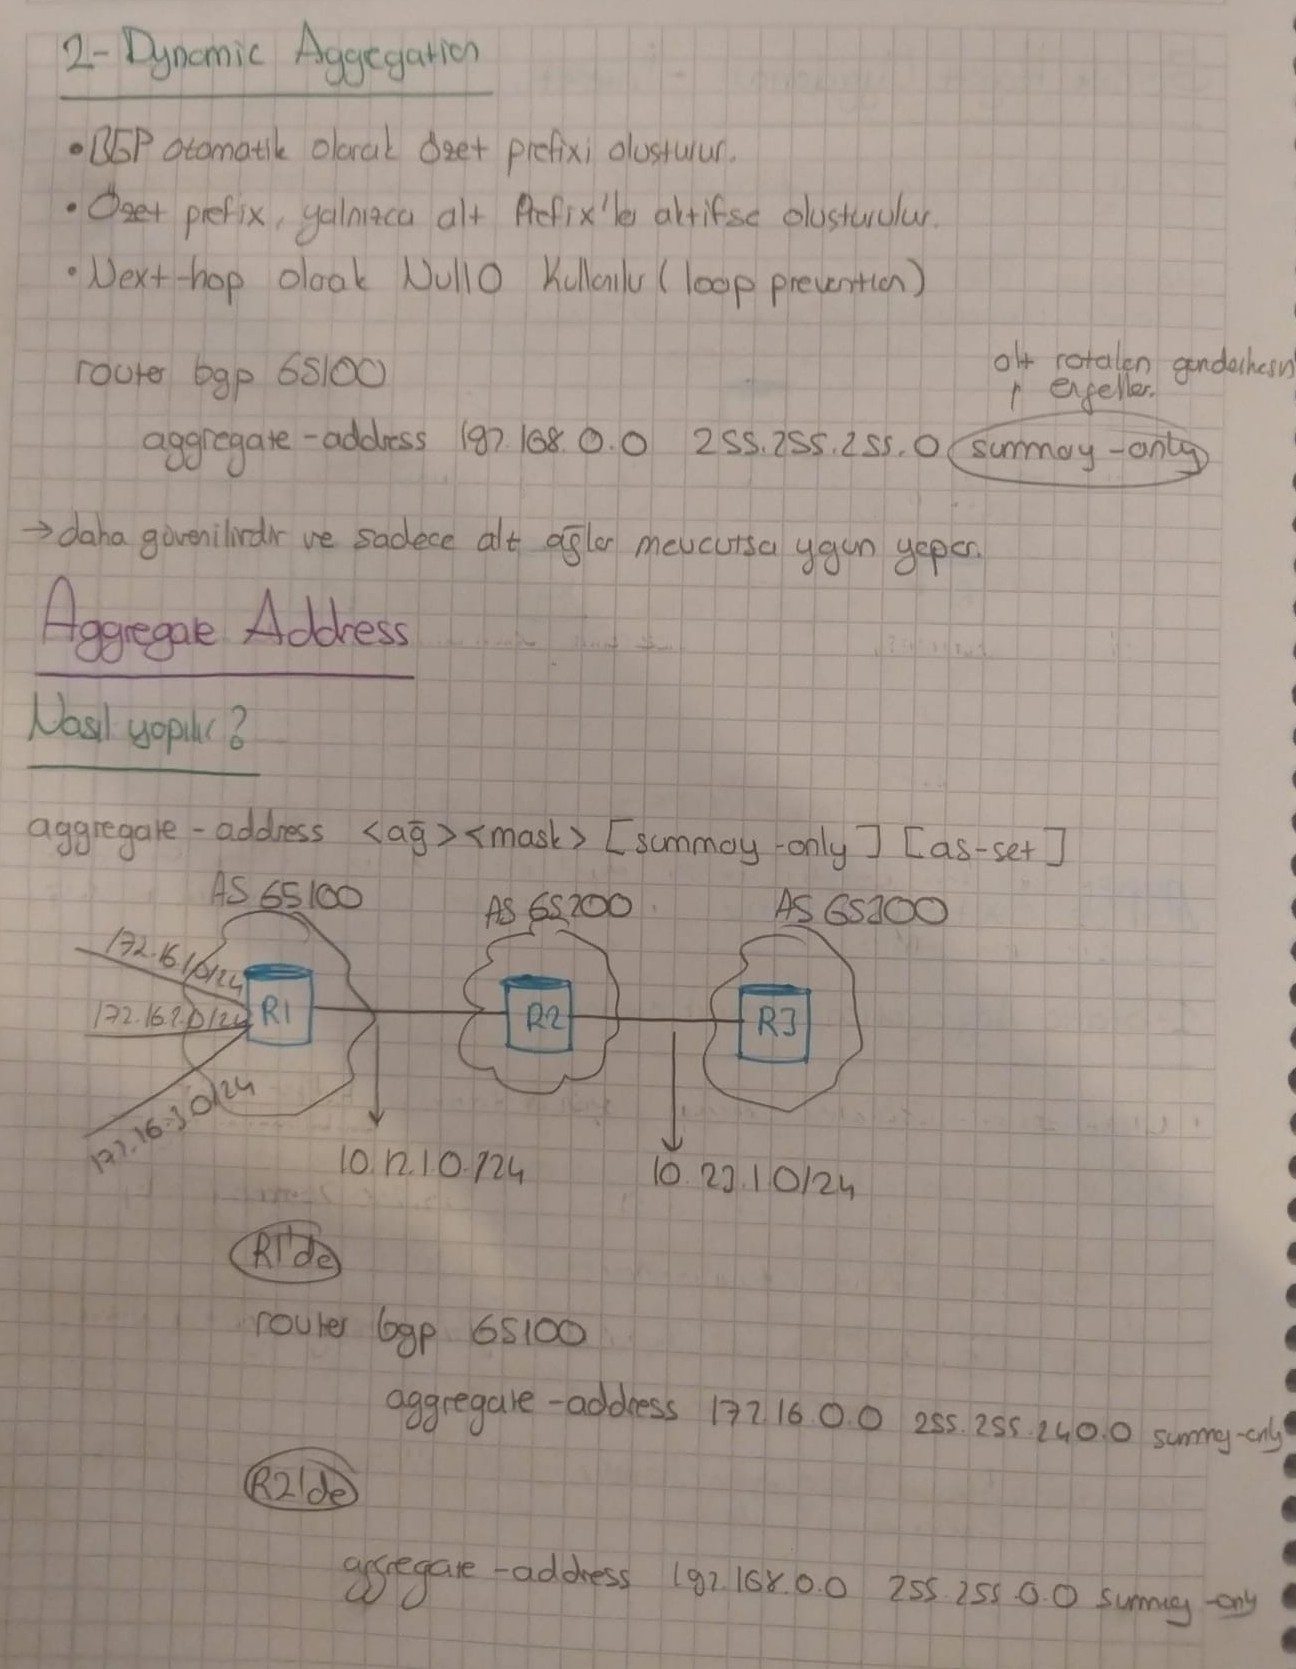 2- Dynamic Aggregation
• BGP otomatik olarak özet prefixi olusturur.
• Özet prefix, yalnızca alt Prefix'ler aktifse olusturulur.
• Next-hop olarak Null0 Kullanılır (loop prevention)
router bgp 65100
alt rotaların gönderilmesini
engeller.
aggregate-address 192.168.0.0 255.255.255.0 summary-only
→ daha güvenilirdir ve sadece alt ağlar mevcutsa yayın yapar.
Aggregate Address
Nasıl yapılır?
aggregate-address <ağ> <mask> [summary-only] [as-set]
AS 65100 AS 65200 AS 65300
172.16.1.0/24
172.16.2.0/24
172.16.3.0/24
R1 R2 R3
10.12.1.0/24 10.23.1.0/24
R1'de
router bgp 65100
aggregate-address 172.16.0.0 255.255.240.0 summary-only
R2'de
aggregate-address 192.168.0.0 255.255.0.0 summary-only